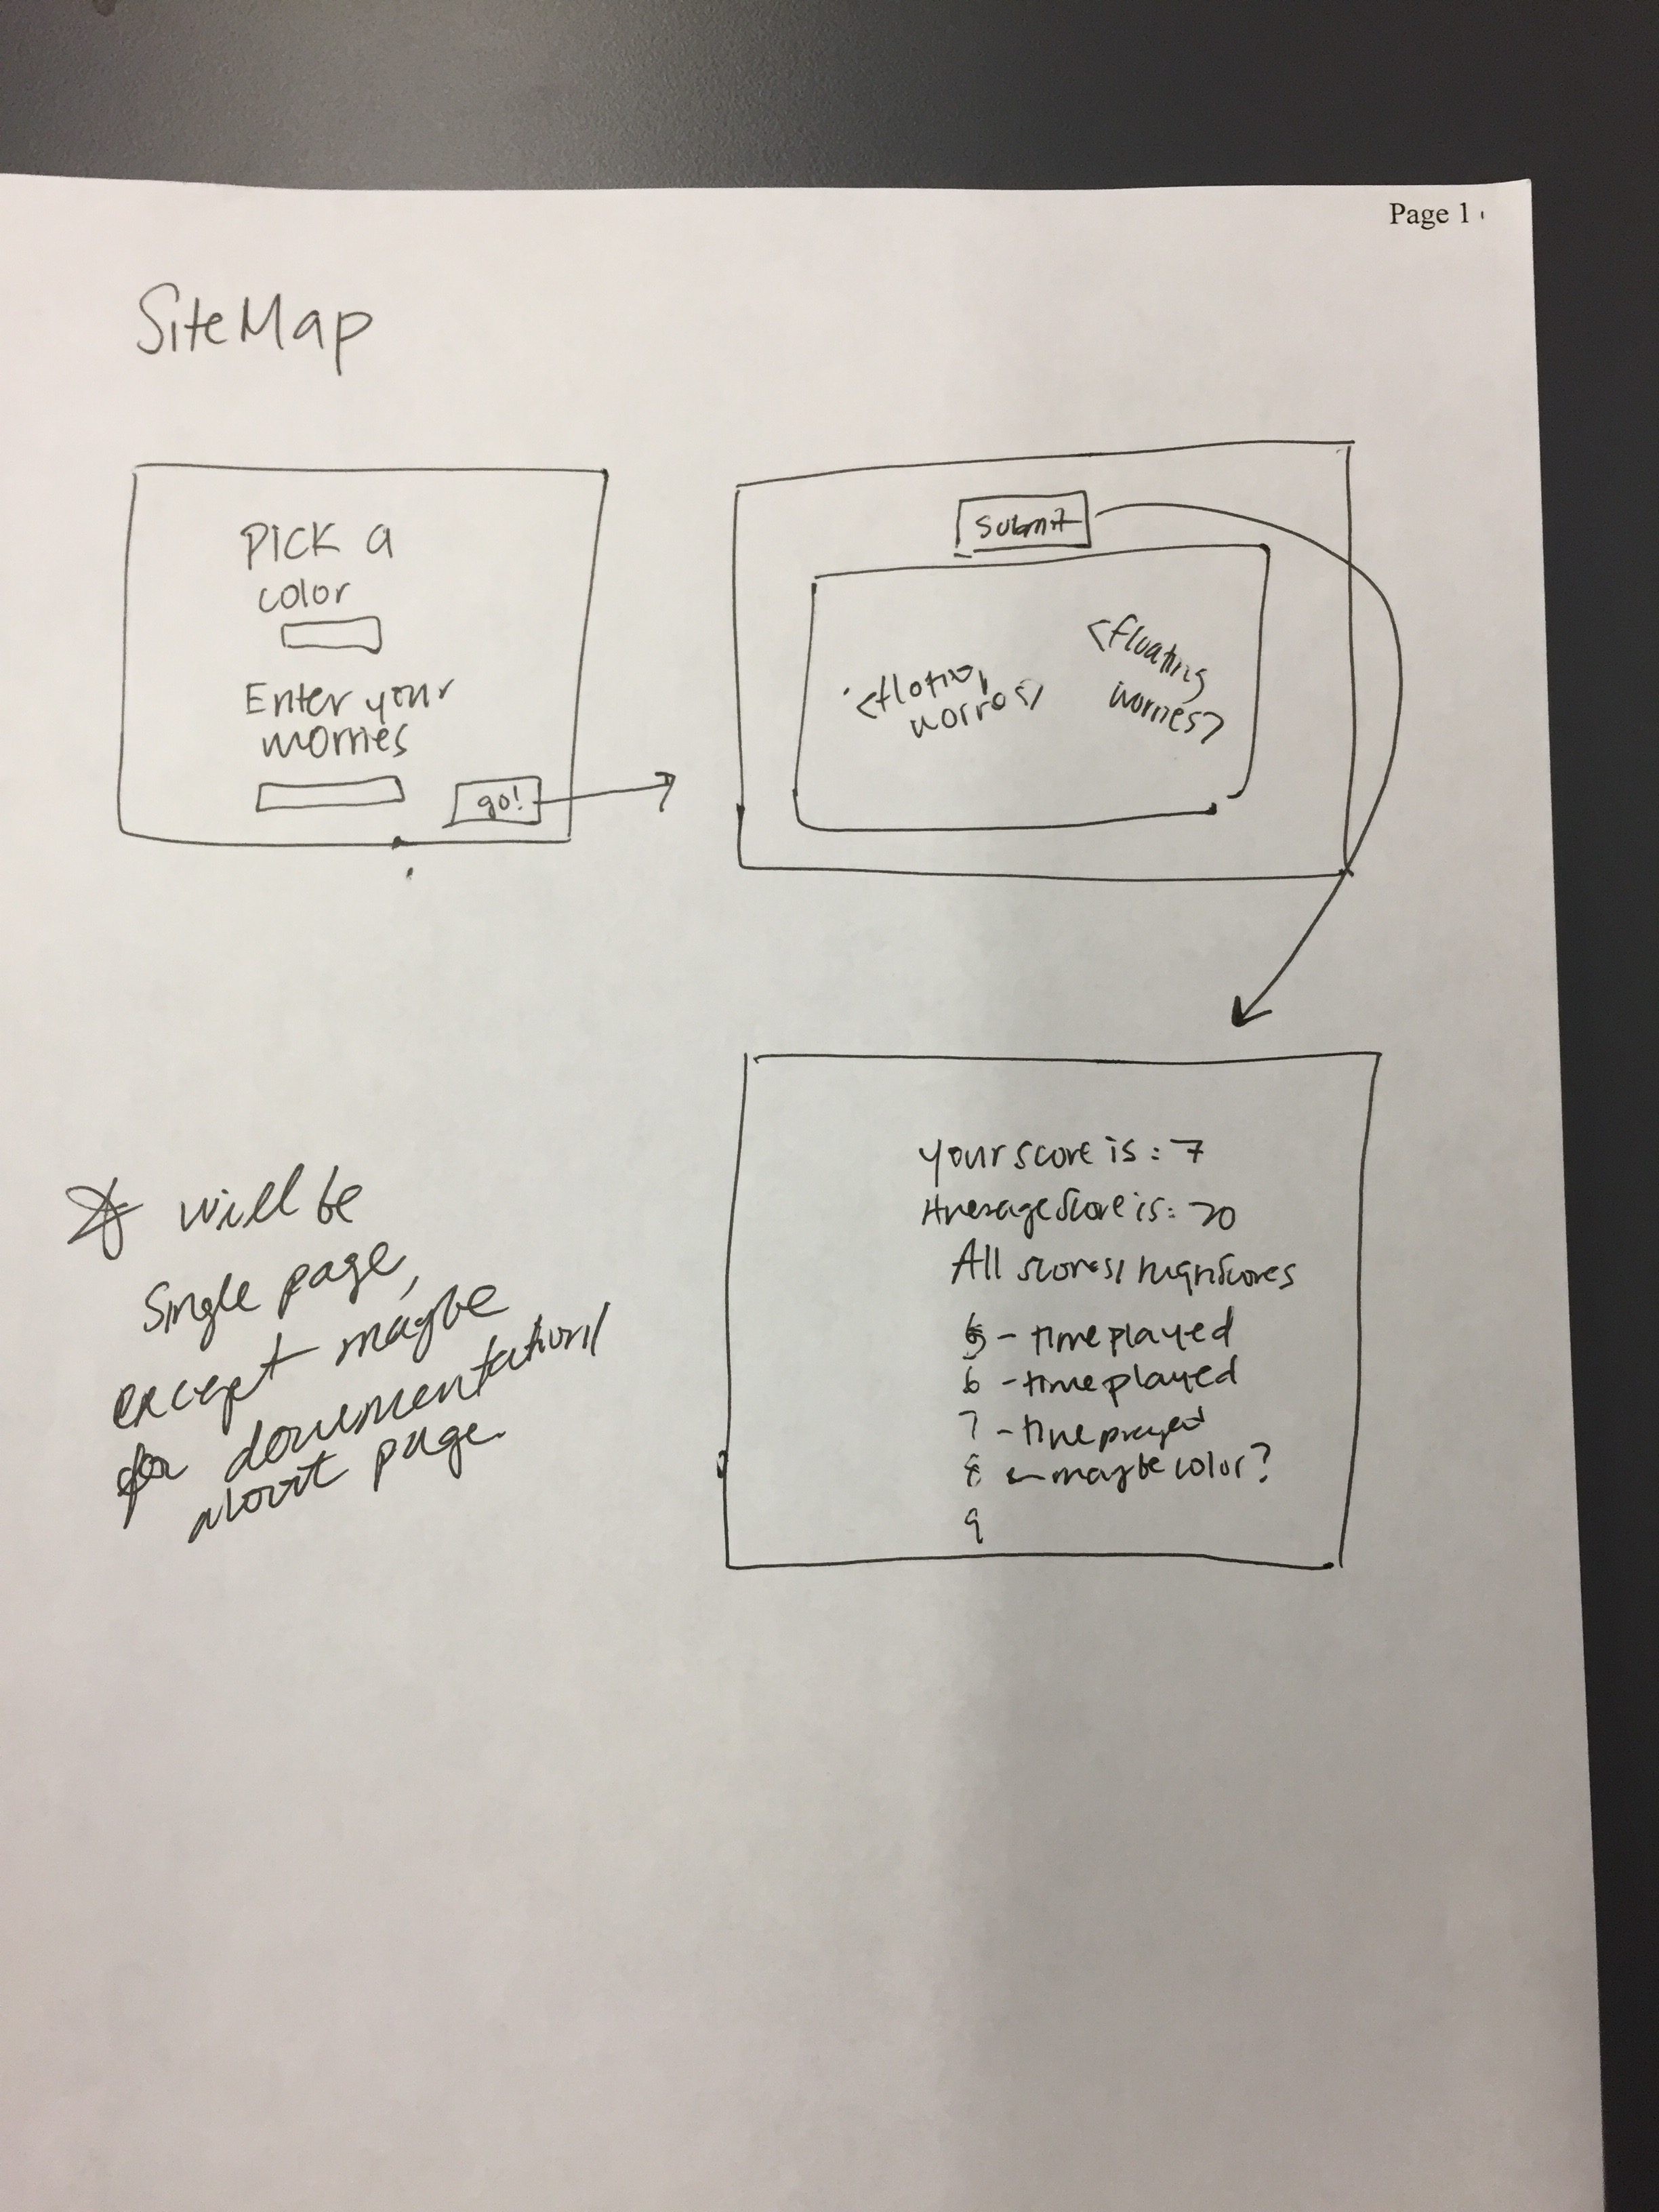 Page 1
SiteMap
PICK a
color
Enter your
worries
go!
Submit
<floating
worries>
<floating
worries>
your score is: 7
Average Score is: 20
All scores/highscores
5 - time played
6 - time played
7 - time played
8 ← maybe color?
9
* will be
Single page,
except maybe
for documentation/
about page.